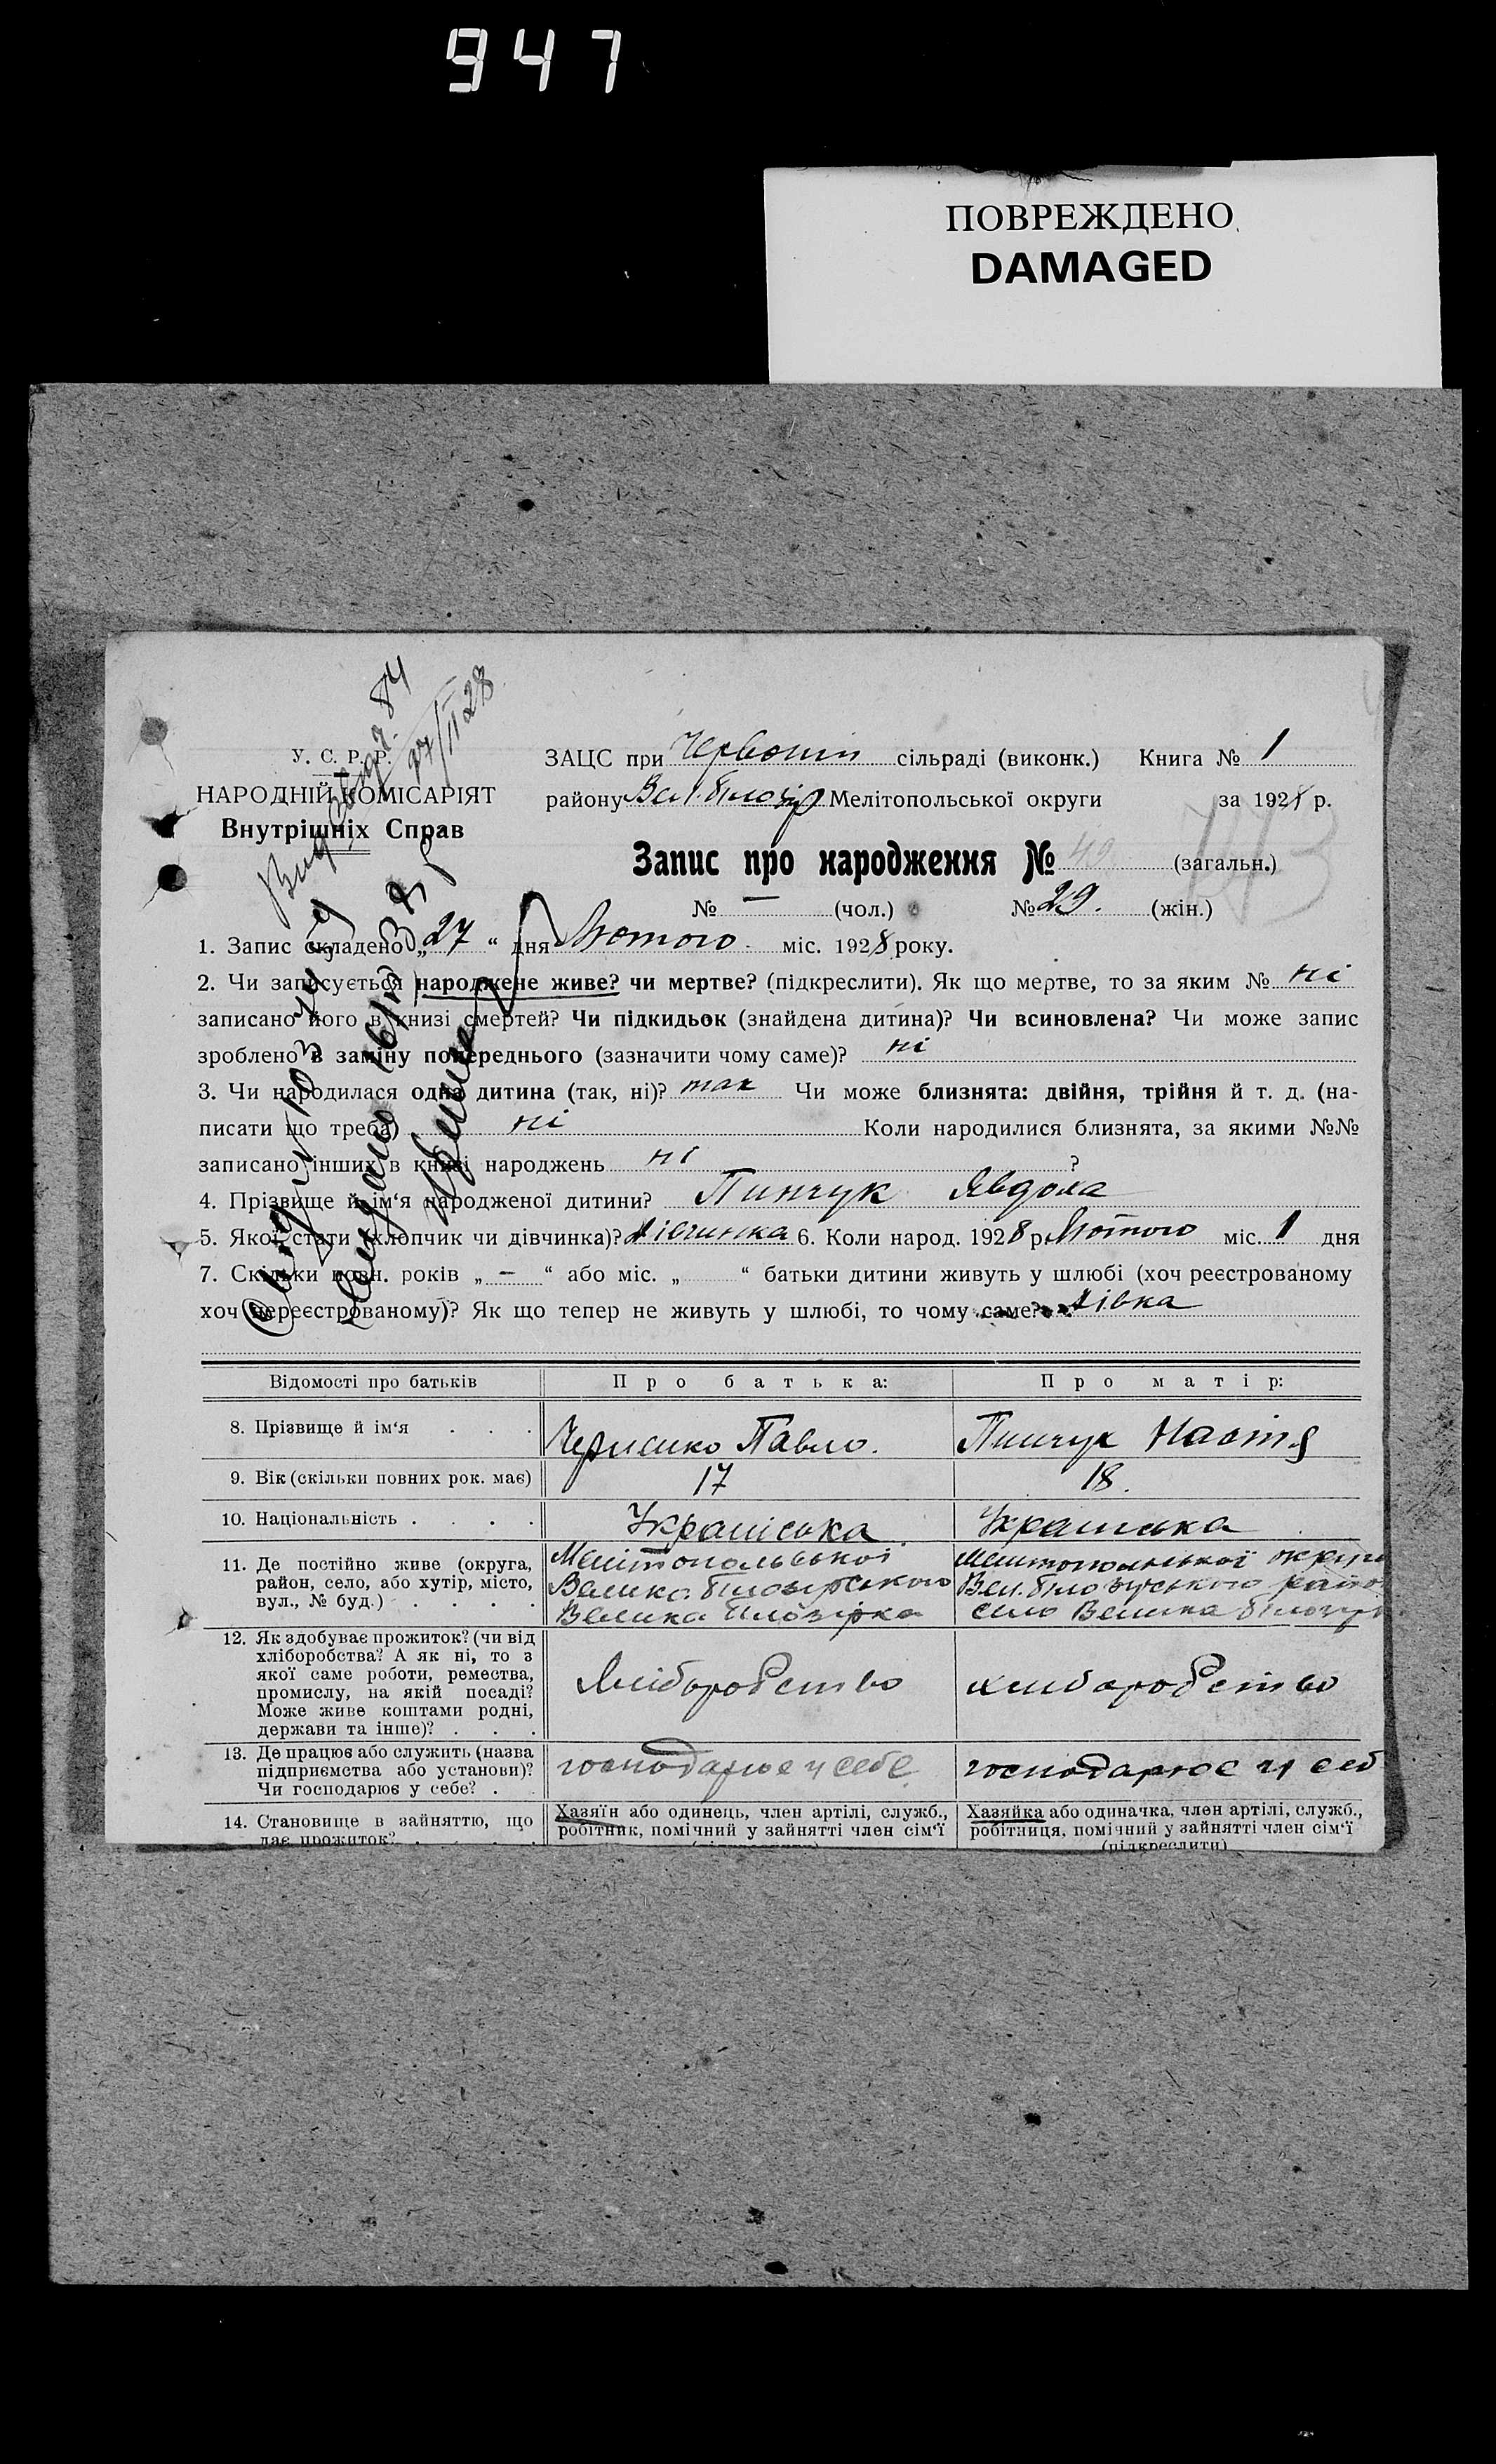 947
ПОВРЕЖДЕНО
DAMAGED
84
27/II 28
У. С. Р. Р.
НАРОДНІЙ КОМІСАРІЯТ
Внутрішніх Справ
ЗАЦС при Червоній сільраді (виконк.) Книга № 1
району Вел. Білозір Мелітопольської округи за 1928 р.
Запис про народження № 49 (загальн.)
113
№ — (чол.) № 29. (жін.)
1. Запис складено „27“ дня Лютого міс. 1928 року.
2. Чи записується народжене живе? чи мертве? (підкреслити). Як що мертве, то за яким № ні
записано його в книзі смертей? Чи підкидьок (знайдена дитина)? Чи всиновлена? Чи може запис
зроблено в заміну попереднього (зазначити чому саме)? ні
3. Чи народилася одна дитина (так, ні)? так Чи може близнята: двійня, трійня й т. д. (на-
писати що треба) ні Коли народилися близнята, за якими №№
записано інших в книзі народжень ні ?
4. Прізвище й ім‘я народженої дитини? Пинчук Явдоха
5. Якої стати (хлопчик чи дівчинка)? дівчинка 6. Коли народ. 1928 р. Лютого міс. 1 дня
7. Скільки повн. років „ — “ або міс. „ “ батьки дитини живуть у шлюбі (хоч реєстрованому
хоч нереєстрованому)? Як що тепер не живуть у шлюбі, то чому саме? дівка
Відомості про батьків Про батька: Про матір:
8. Прізвище й ім‘я . . . Павло. Пинчук Настя
9. Вік (скільки повних рок. має) 17 18.
10. Національність . . . . Українська Українська
11. Де постійно живе (округа, Мелітопольської Мелітопольської округи
район, село, або хутір, місто, Велико Білозірського Вел. Білозірського район
вул., № буд.) . . . . Велика Білозірка село Велика Білозір
12. Як здобуває прожиток? (чи від
хліборобства? А як ні, то з
якої саме роботи, ремества,
промислу, на якій посаді? Хліборобство хліборобство
Може живе коштами родні,
держави та інше)? . . .
13. Де працює або служить (назва
підприємства або установи)? господарює у себе господарює у себ
Чи господарює у себе? . .
14. Становище в зайняттю, що Хазяїн або одинець, член артілі, служб., Хазяйка або одиначка, член артілі, служб.,
дає прожиток? . . . . робітник, помічний у зайнятті член сім‘ї робітниця, помічний у зайнятті член сім‘ї
(підкреслити)